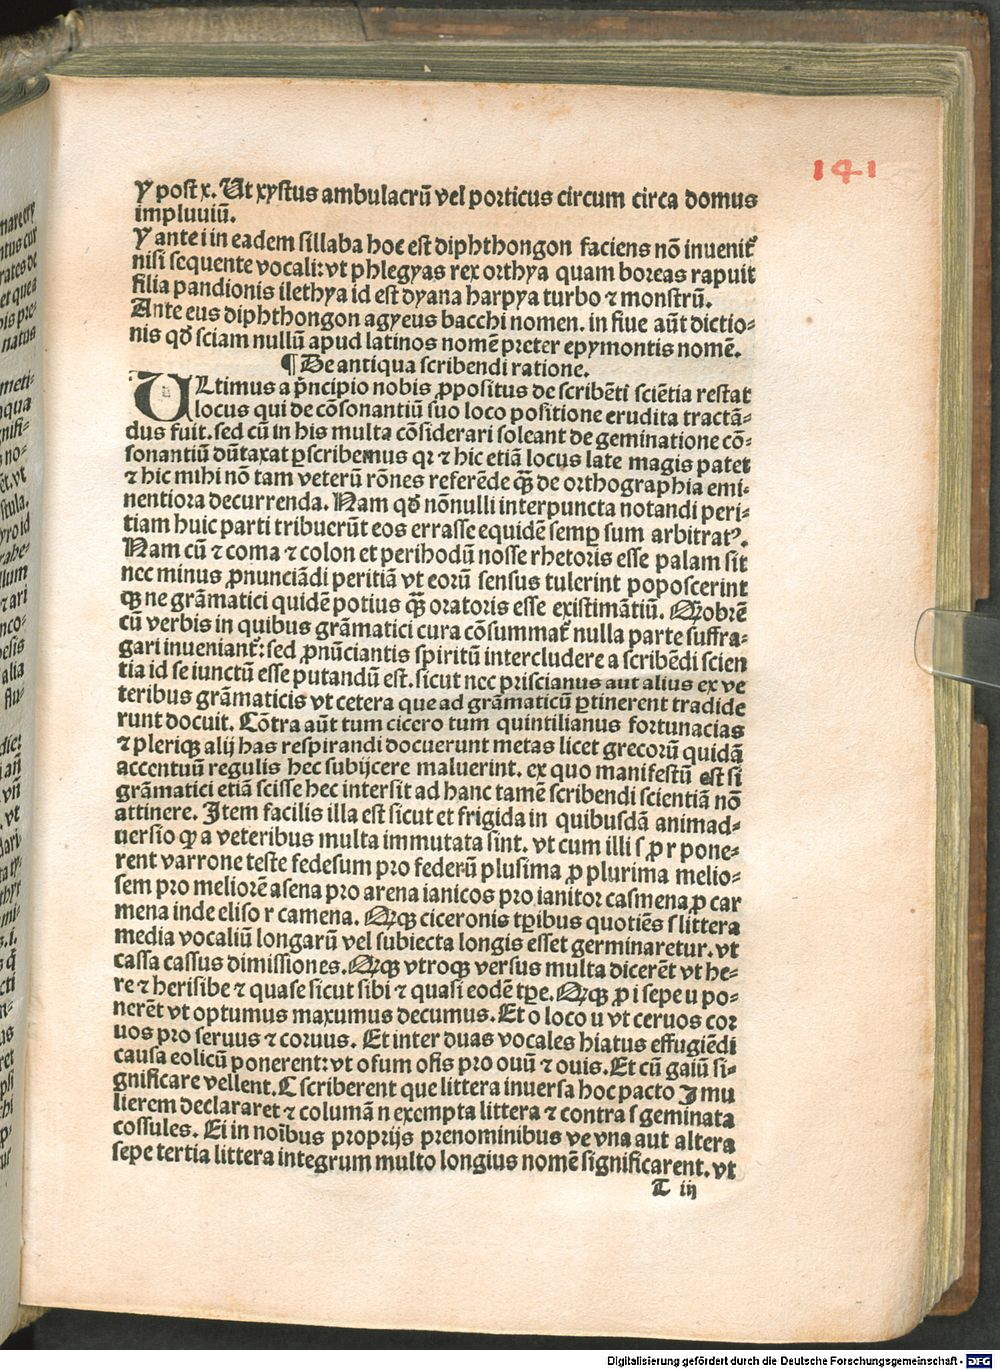 141
y post x. Ut xystus ambulacrū vel porticus circum circa domus
impluuiū.
Y ante i in eadem sillaba hoc est diphthongon faciens nō inuenit᷑
nisi sequente vocali: vt phlegyas rex orthya quam boreas rapuit
filia pandionis ilethya id est dyana harpya turbo ⁊ monstrū.
Ante eus diphthongon agyeus bacchi nomen. in fiue aūt dictio⸗
nis qđ sciam nullū apud latinos nomē preter epymontis nomē.
¶ De antiqua scribendi ratione.
ULtimus a p̄ncipio nobis ꝓpositus de scribēti sciētia restat
locus qui de cōsonantiū suo loco positione erudita tractā⸗
dus fuit. sed cū in his multa cōsiderari soleant de geminatione cō⸗
sonantiū dūtaxat ꝑscribemus qꝛ ⁊ hic etiā locus late magis patet
⁊ hic mihi nō tam veterū rōnes referēde q̄ꝫ de orthographia emi⸗
nentiora decurrenda. Nam qđ nōnulli interpuncta notandi peri⸗
tiam huic parti tribuerūt eos errasse equidē semꝑ sum arbitratꝰ.
Nam cū ⁊ coma ⁊ colon et perihodū nosse rhetoris esse palam sit
nec minus ꝓnunciādi peritiā vt eorū sensus tulerint poposcerint
qꝫ ne grāmatici quidē potius q̄ꝫ oratoris esse existimātiū. Qꝛobrē
cū verbis in quibus grāmatici cura cōsummat᷑ nulla parte suffra⸗
gari inueniant᷑: sed ꝓnūciantis spiritū intercludere a scribēdi scien
tia id se iunctū esse putandū est. sicut nec priscianus aut alius ex ve
teribus grāmaticis vt cetera que ad grāmaticū ꝑtinerent tradide
runt docuit. Cōtra aūt tum cicero tum quintilianus fortunacias
⁊ pleriqꝫ alij has respirandi docuerunt metas licet grecorū quidā
accentuū regulis hec subijcere maluerint. ex quo manifestū est si
grāmatici etiā scisse hec intersit ad hanc tamē scribendi scientiā nō
attinere. Item facilis illa est sicut et frigida in quibusdā animad⸗
uersio qꝫ a veteribus multa immutata sint. vt cum illi s ꝓ r pone⸗
rent varrone teste fedesum pro federū plusima ꝓ plurima melio⸗
sem pro meliorē asena pro arena ianicos pro ianitor casmena ꝓ car
mena inde eliso r camena. Qꝫ ciceronis tꝑibus quotiēs s littera
media vocaliū longarū vel subiecta longis esset germinaretur. vt
cassa cassus dimissiones. Qꝫ vtroqꝫ versus multa dicerēt vt he⸗
re ⁊ herisibe ⁊ quase sicut sibi ⁊ quasi eodē tꝑe. Qꝫ ꝓ i sepe u po⸗
nerēt vt optumus maxumus decumus. Et o loco u vt ceruos cor
uos pro seruus ⁊ coruus. Et inter duas vocales hiatus effugiēdi
causa eolicū ponerent: vt ofum ofis pro ouū ⁊ ouis. Et cū gaiū si⸗
gnificare vellent. C scriberent que littera inuersa hoc pacto Ɔ mu
lierem declararet ⁊ columā n exempta littera ⁊ contra s geminata
cossules. Ei in noībus proprijs prenominibus ve vna aut altera
sepe tertia littera integrum multo longius nomē significarent. vt
T iij
Digitalisierung gefördert durch die Deutsche Forschungsgemeinschaft - DFG